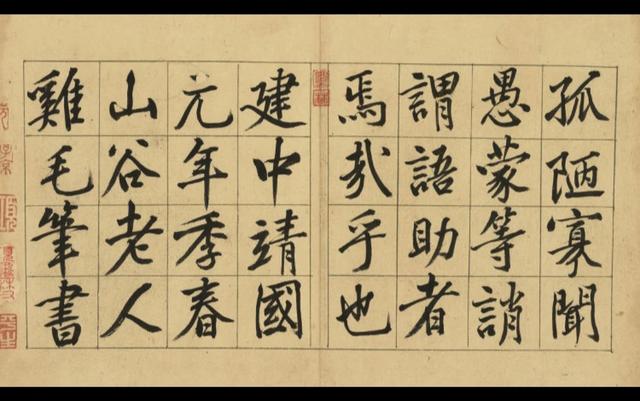 孤陋寡聞
愚蒙等誚
謂語助者
焉哉乎也
建中靖國
元年季春
山谷老人
雞毛筆書